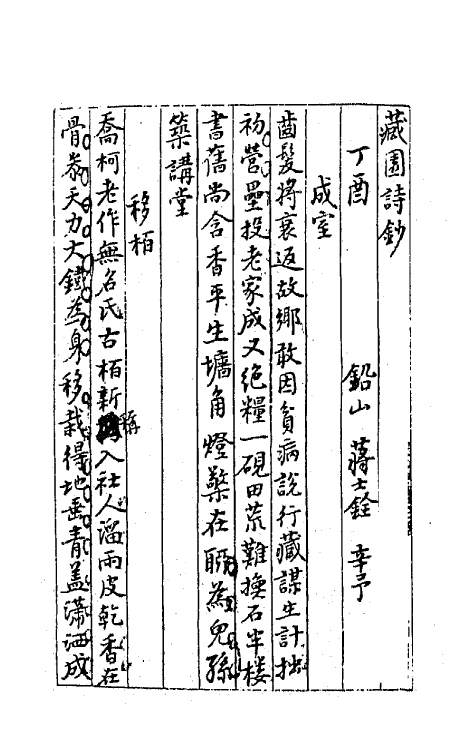 藏園詩鈔
丁酉　鉛山　蔣士銓　辛予
成室
齒髮將衰返故鄉敢因貧病說行藏謀生計拙
初營壘投老家成又絕糧一硯田荒難換石半楼
書舊尚含香平生墻角燈檠在聊為兒孫
築講堂
移柏
喬柯老作無名氏古栢新稱入社人溜雨皮乾香在
骨参天力大鐵為身移栽得地垂青盖瀟洒成